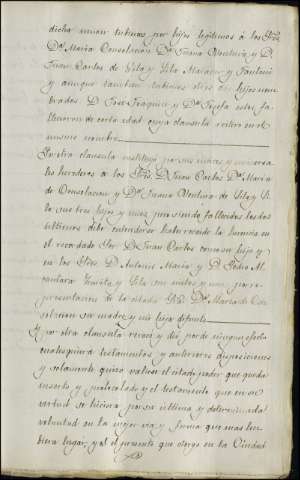 dicha union tubimos por hijos legitimos á los Sres
Da. Maria Consolacion Da. Juana Ventura y D.
Juan Carlos de Vila y Vila Mariscar y
y aunque tambien tubimos otros dos hijos nom
brados D. José Joaquin y Da. Josefa estos fa
llecieron de corta edad cuya clausula reitero en el
mismo nombre
En otra clausula instituyó por sus unicos y universa
les herederos á los Sres. D. Juan Carlos Da. Maria
de Consolacion y Da. Juana Ventura de Vila y Vi
la sus tres hijos y mios, pero siendo fallecidas las dos
ultimas debe entenderse hater recaido la herencia en
el recordado Sor D. Juan Carlos como su hijo y
en los Sres. D. Antonio Maria y D. Pedro M.
y Vila sus nietos y mios por re
presentacion de la citada Sra. Da. Maria de Con
solacion su madre y mi hija difunta
Y por otra clausula revocó y dió por de ningun efecto
cualesquiera testamentos y anteriores disposiciones
y solamente quiso valiese el citado poder que queda
inserto y protocolado y el testamento que en su
virtud se hiciera por su ultima y determinada
voluntad en la mejor via y forma que mas hu
biera lugar, y al presente que otorgo en la Ciudad